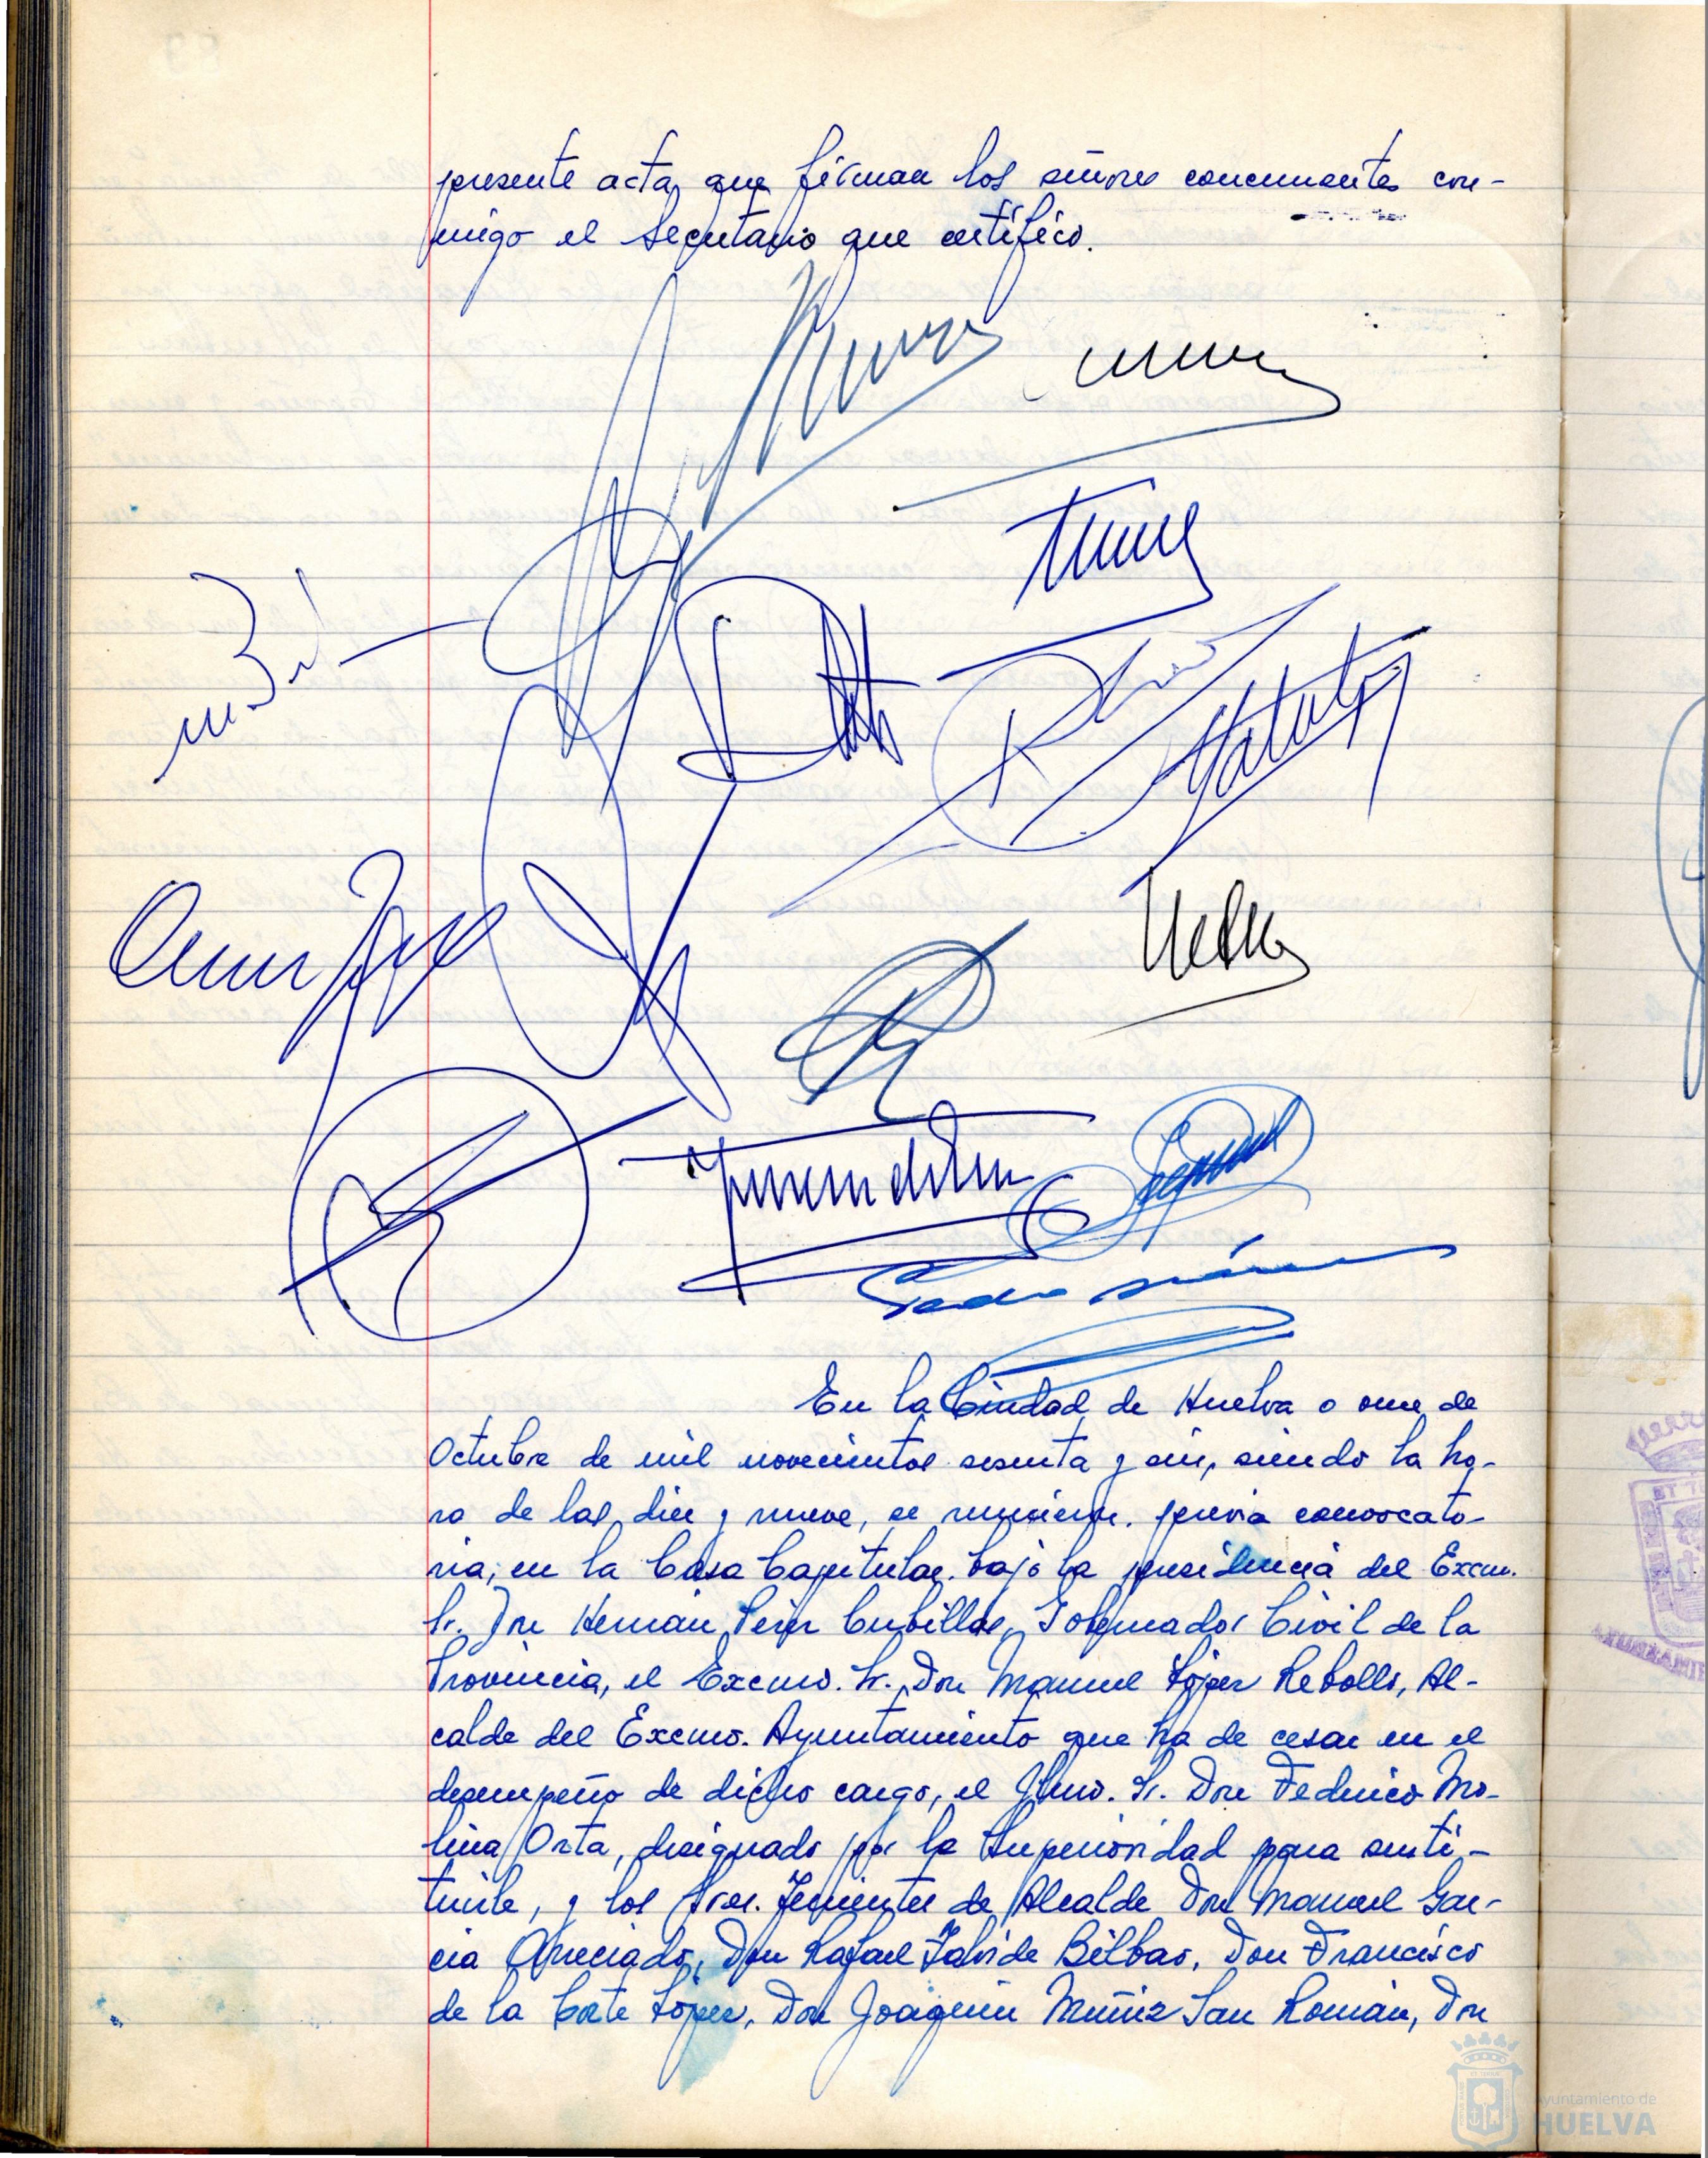 presente acta, que firman los señores concurrentes con-
migo el Secretario que certifico.
En la Ciudad de Huelva a once de
Octubre de mil novecientos sesenta y seis, siendo la ho-
ra de las diez y nueve, se reunieron, previa convocato-
ria, en la Casa Capitular, bajo la presidencia del Excmo.
Sr. Don Hernán Pérez Cubillas, Gobernador Civil de la
Provincia, el Excmo. Sr. Don Manuel López Rebollo, Al-
calde del Excmo. Ayuntamiento que ha de cesar en el
desempeño de dicho cargo, el Ilmo. Sr. Don Federico Mo-
lina Orta, designado por la Superioridad para susti-
tuirle, y los Sres. Tenientes de Alcalde Don Manuel Gar-
cia Don Rafael Bilbao, Don Francisco
de la Corte López, Don Joaquin Muñiz San Román, Don
Ayuntamiento de
HUELVA